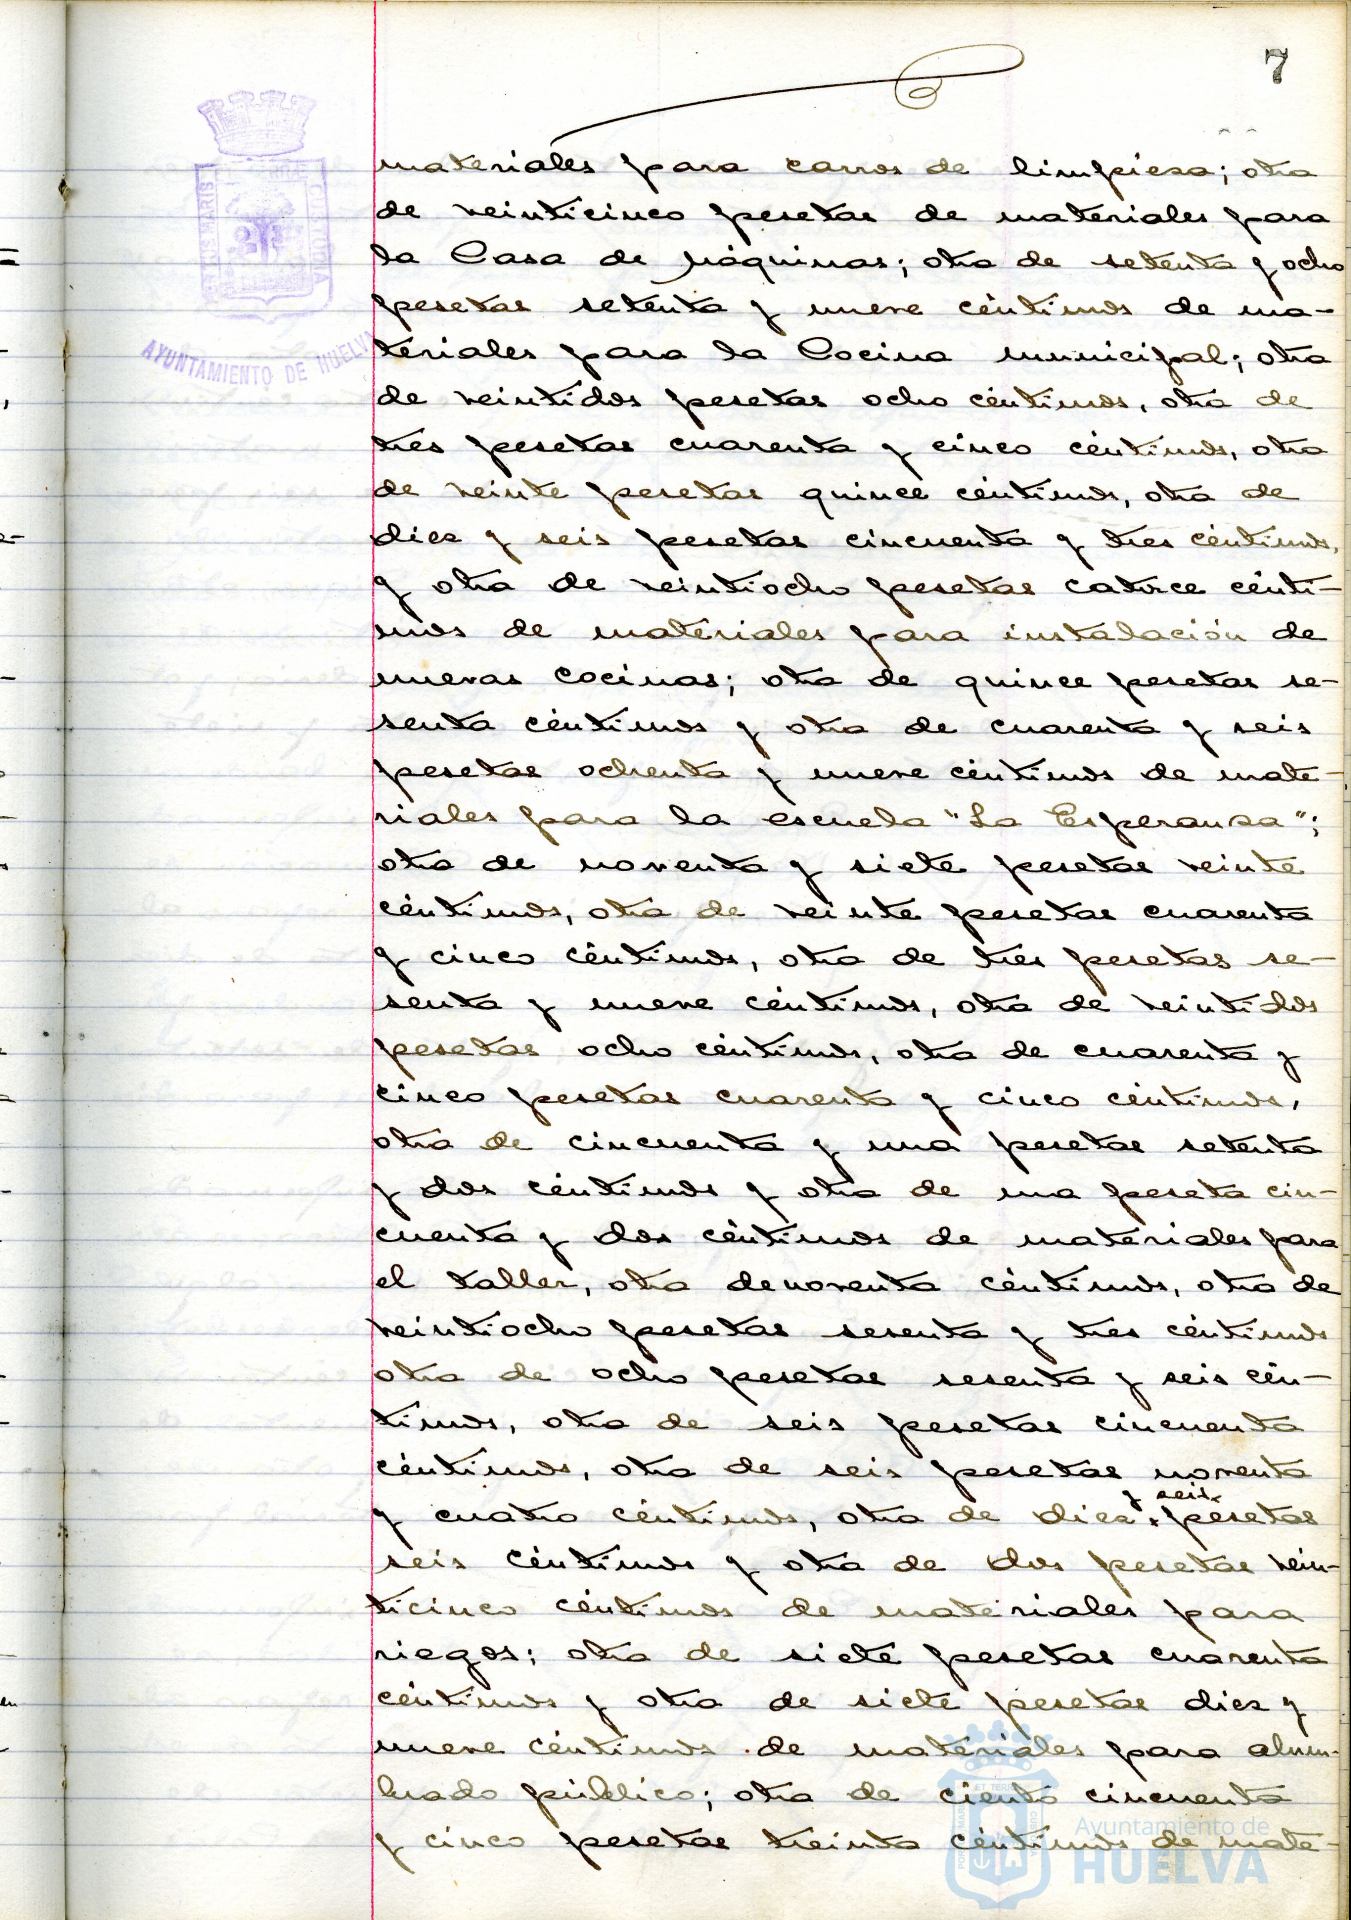 7
materiales para carros de limpieza; otra
de veinticinco pesetas de materiales para
la Casa de Máquinas; otra de setenta y ocho
pesetas setenta y nueve céntimos de ma-
teriales para la Cocina municipal; otra
de veintidos pesetas ocho céntimos, otra de
tres pesetas cuarenta y cinco céntimos, otra
de veinte pesetas quince céntimos, otra de
diez y seis pesetas cincuenta y tres céntimos,
y otra de veintiocho pesetas catorce cénti-
mos de materiales para instalación de
nuevas cocinas; otra de quince pesetas se-
senta céntimos y otra de cuarenta y seis
pesetas ochenta y nueve céntimos de mate-
riales para la escuela "La Esperanza";
otra de noventa y siete pesetas veinte
céntimos, otra de veinte pesetas cuarenta
y cinco céntimos, otra de tres pesetas se-
senta y nueve céntimos, otra de veintidos
pesetas ocho céntimos, otra de cuarenta y
cinco pesetas cuarenta y cinco céntimos,
otra de cincuenta y una pesetas setenta
y dos céntimos y otra de una peseta cin-
cuenta y dos céntimos de materiales para
el taller, otra de noventa céntimos, otra de
veintiocho pesetas sesenta y tres céntimos
otra de ocho pesetas sesenta y seis cén-
timos, otra de seis pesetas cincuenta
céntimos, otra de seis pesetas noventa
y cuatro céntimos, otra de diez y seis pesetas
seis céntimos y otra de dos pesetas vein-
ticinco céntimos de materiales para
riegos; otra de siete pesetas cuarenta
céntimos y otra de siete pesetas diez y
nueve céntimos de materiales para alum-
brado público; otra de ciento cincuenta
y cinco pesetas treinta céntimos de mate-
PORTUS MARIS ET TERRÆ CUSTODIA
AYUNTAMIENTO DE HUELVA
Ayuntamiento de
HUELVA